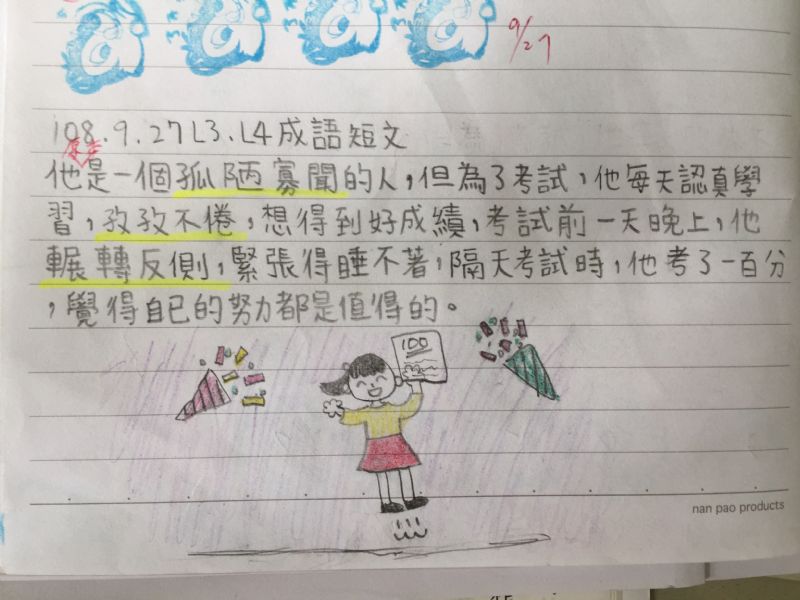 9/27
108.9.27 L3、L4成語短文
原本
他是一個孤陋寡聞的人,但為了考試,他每天認真學
習,孜孜不倦,想得到好成績,考試前一天晚上,他
輾轉反側,緊張得睡不著,隔天考試時,他考了一百分
,覺得自已的努力都是值得的。
100
nan pao products